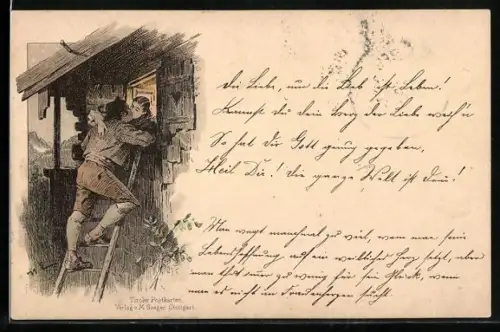 Die Liebe, nur die Lieb' ist Leben!
Kannst Du dein Herz der Liebe weih'n
So hat Dir Gott genug gegeben,
Heil Dir! die ganze Welt ist dein!
Man wagt manchmal zu viel, wenn man seine
Lebenshoffnung auf ein weibliches Herz setzt, aber
man thut immer zu wenig für sein Glück, wenn
man es nicht an Frauenherzen sucht.
Tiroler Postkarten.
Verlag v. M. Seeger Stuttgart.